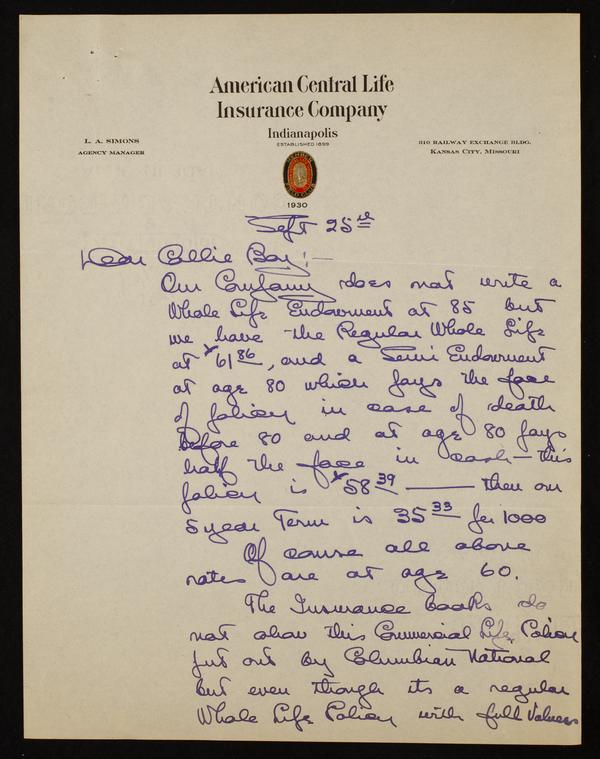 American Central Life
Insurance Company
Indianapolis
ESTABLISHED 1899
L. A. SIMONS
AGENCY MANAGER
810 RAILWAY EXCHANGE BLDG.
KANSAS CITY, MISSOURI
1930
Sept 25th
Dear Collie Boy:—
Our Company does not write a
Whole Life Endowment at 85 but
we have the Regular Whole Life
at $61 86, and a Semi Endowment
at age 80 which pays the face
of policy in case of death
before 80 and at age 80 pays
half the face in cash — this
policy is $58 39 — then our
5 year Term is 35 33 per 1000
Of course all above
rates are at age 60.
The Insurance books do
not show this Commercial Life Policy
put out by Columbian National
but even though its a regular
Whole Life Policy with full Values